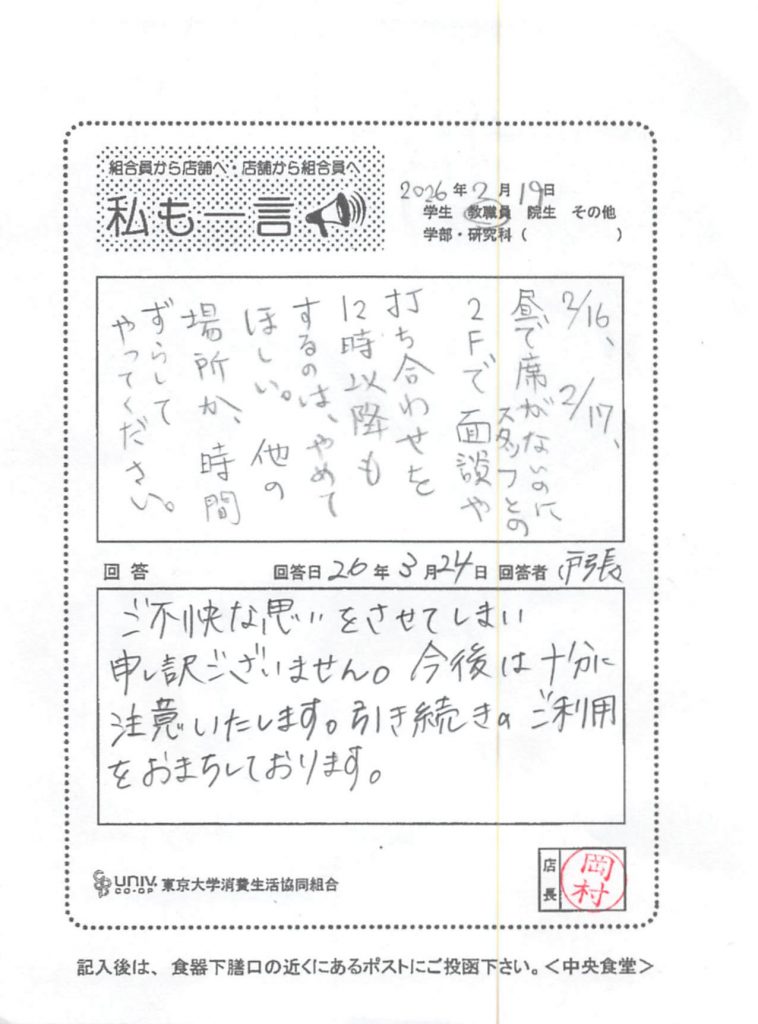 組合員から店舗へ・店舗から組合員へ
私も一言
2026年2月19日
学生 教職員 院生 その他
学部・研究科( )
2/16、2/17、
昼で席がないのに
スタッフとの
2Fで面談や
打ち合わせを
12時以降も
するのは、やめて
ほしい。他の
場所か、時間
ずらして
やってください。
回答 回答日 26年3月24日 回答者 戸張
ご不快な思いをさせてしまい
申し訳ございません。今後は十分に
注意いたします。引き続きのご利用
をおまちしております。
UNIV. CO-OP 東京大学消費生活協同組合
店長 岡村
記入後は、食器下膳口の近くにあるポストにご投函下さい。<中央食堂>